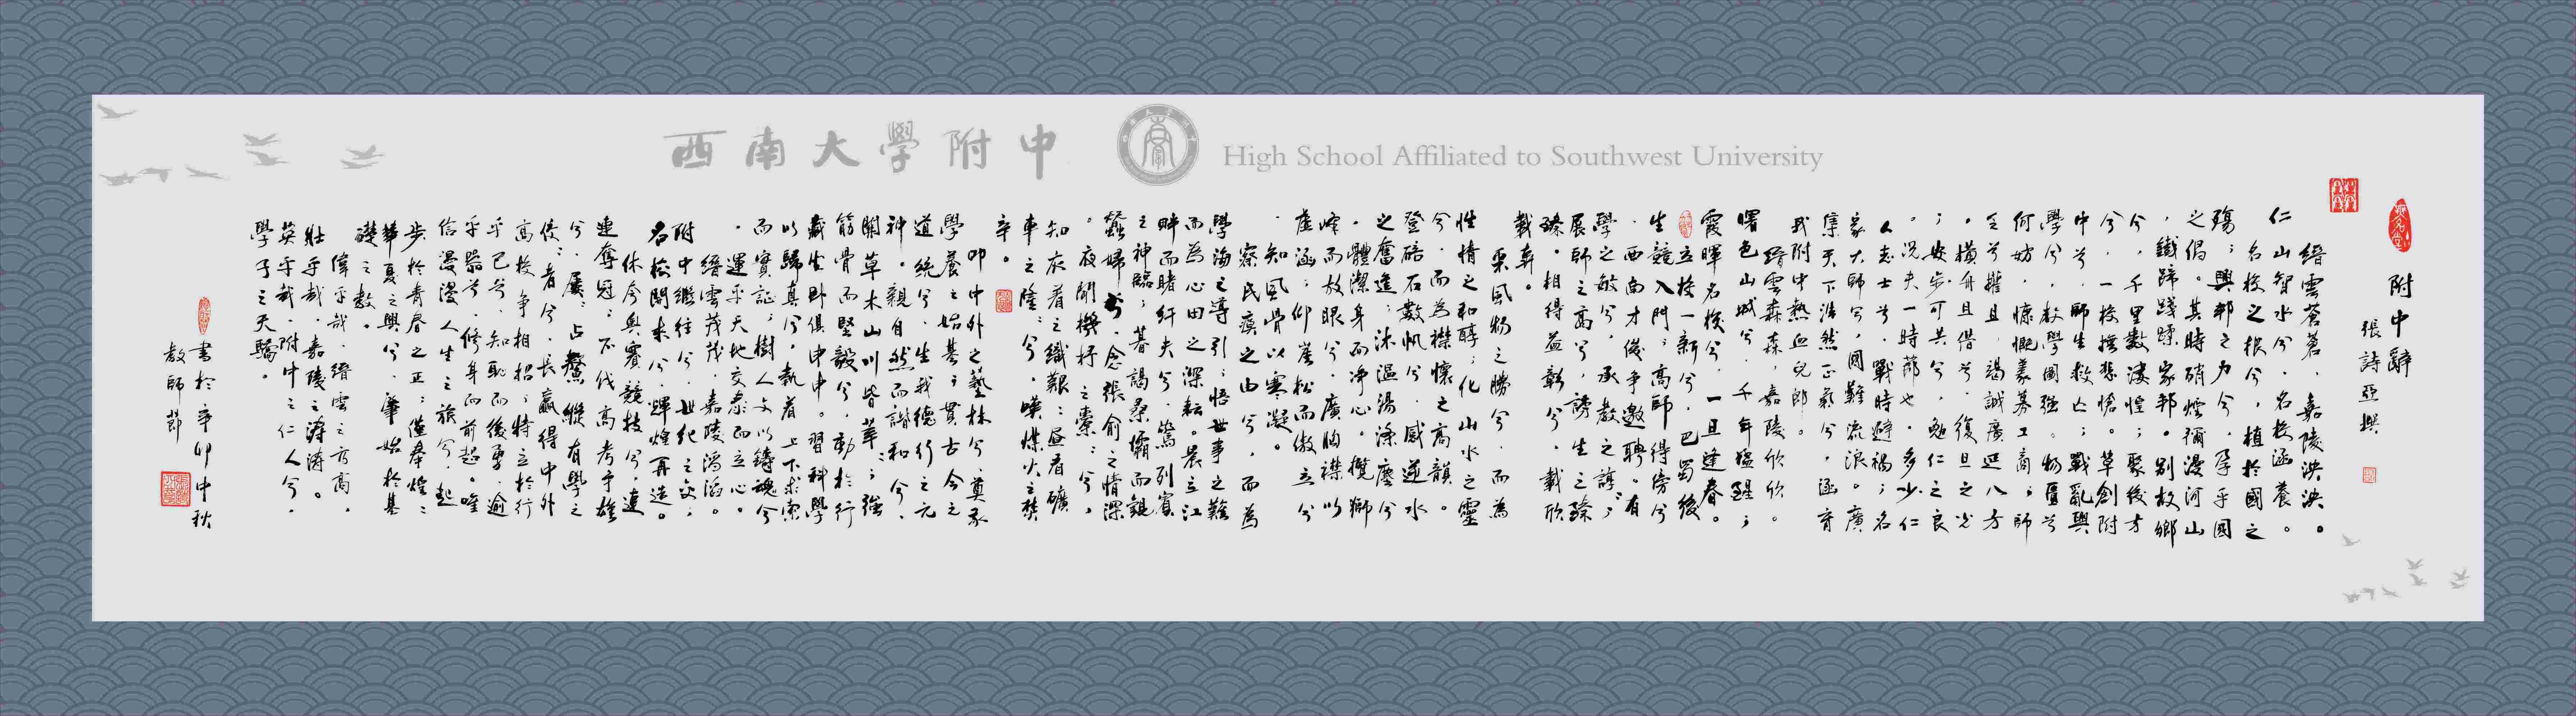 西南大學附中
High School Affiliated to Southwest University
附中辭
張詩亞撰
縉雲蒼蒼，嘉陵泱泱。
仁山智水兮，名校涵養。
名校之根兮，植於國之
殤；興邦之力兮，孕乎國
之倡。其時硝煙彌漫河山
，鐵蹄踐蹂家邦。別故鄉
兮，千里數淒惶；聚後方
兮，一校撫悲愴。草創附
中兮，師生救亡；戰亂興
學兮，教學圖強。物匱兮
何妨，慷慨募工商；師
乏兮權且，竭誠廣延八方
。橫舟且借兮，復旦之光
；安步可共兮，勉仁之良
。況夫一時節也，多少仁
人志士兮，戰時避禍；名
家大師兮，國難流浪。廣
集天下浩然正氣兮，涵育
我附中熱血兒郎。
縉雲森森，嘉陵欣欣。
曙色山城兮，千年猛醒；
霞暉名校兮，一旦逢春。
立校一新兮，巴蜀後
生競入門；高師得傍兮
，西南才俊爭邀聘。有
學之敏兮，承教之諄；
展師之高兮，謗生之臻
臻。相得益彰兮，載欣
載奔。
采風物之勝兮，而為
性情之和醇；化山水之靈
兮，而為襟懷之高韻。
登碚石數帆兮，感逆水
之奮進；沐溫湯滌塵兮
，體潔身而淨心。攬獅
峰而放眼兮，廣胸襟以
虛涵；仰崖松而傲立兮
，知風骨以寒凝。
察民瘼之由兮，而為
學海之導引；悟世事之艱
而為心田之深耘。晨立江
畔而睹纤夫兮，驚列賓
之神臨；暮謁桑孀而親
蠶婦兮，念張俞之情深
。夜聞機杼之素素兮，
知衣着之織艱；晝看礦
車之隆隆兮，嘆煤火之樊
辛。
叩中外之藝林兮，奠承
學養之始基；貫古今之
道統兮，生我德行之元
神。親自然而諧和兮，
關草木山川皆莘莘；強
筋骨而堅毅兮，動於行
藏坐卧俱申申。習科學
以歸真兮，執着上下求索
而實証；樹人文以鑄魂兮
，運乎天地交泰而立心。
縉雲茂茂，嘉陵滔滔。
附中繼往兮，世紀之交，
名檢開來兮，輝煌再造。
休今奧賽競技兮，連
連奪冠；不伐高考爭雄
兮，屢占鰲。縱有學之
佼佼者兮，長贏得中外
高校爭相招；特立於行
乎己兮，知恥而後勇，逾
乎器兮，修身而前超。唯
信漫漫人生之旅兮，起
步於青春之正；僅奉煌煌
華夏之興兮，肇始於基
礎之教。
偉乎哉，縉雲之高，
壯乎哉，嘉陵之濤濤。
英乎哉，附中之仁人兮，
學子之天驕。
書於辛卯中秋
教師節